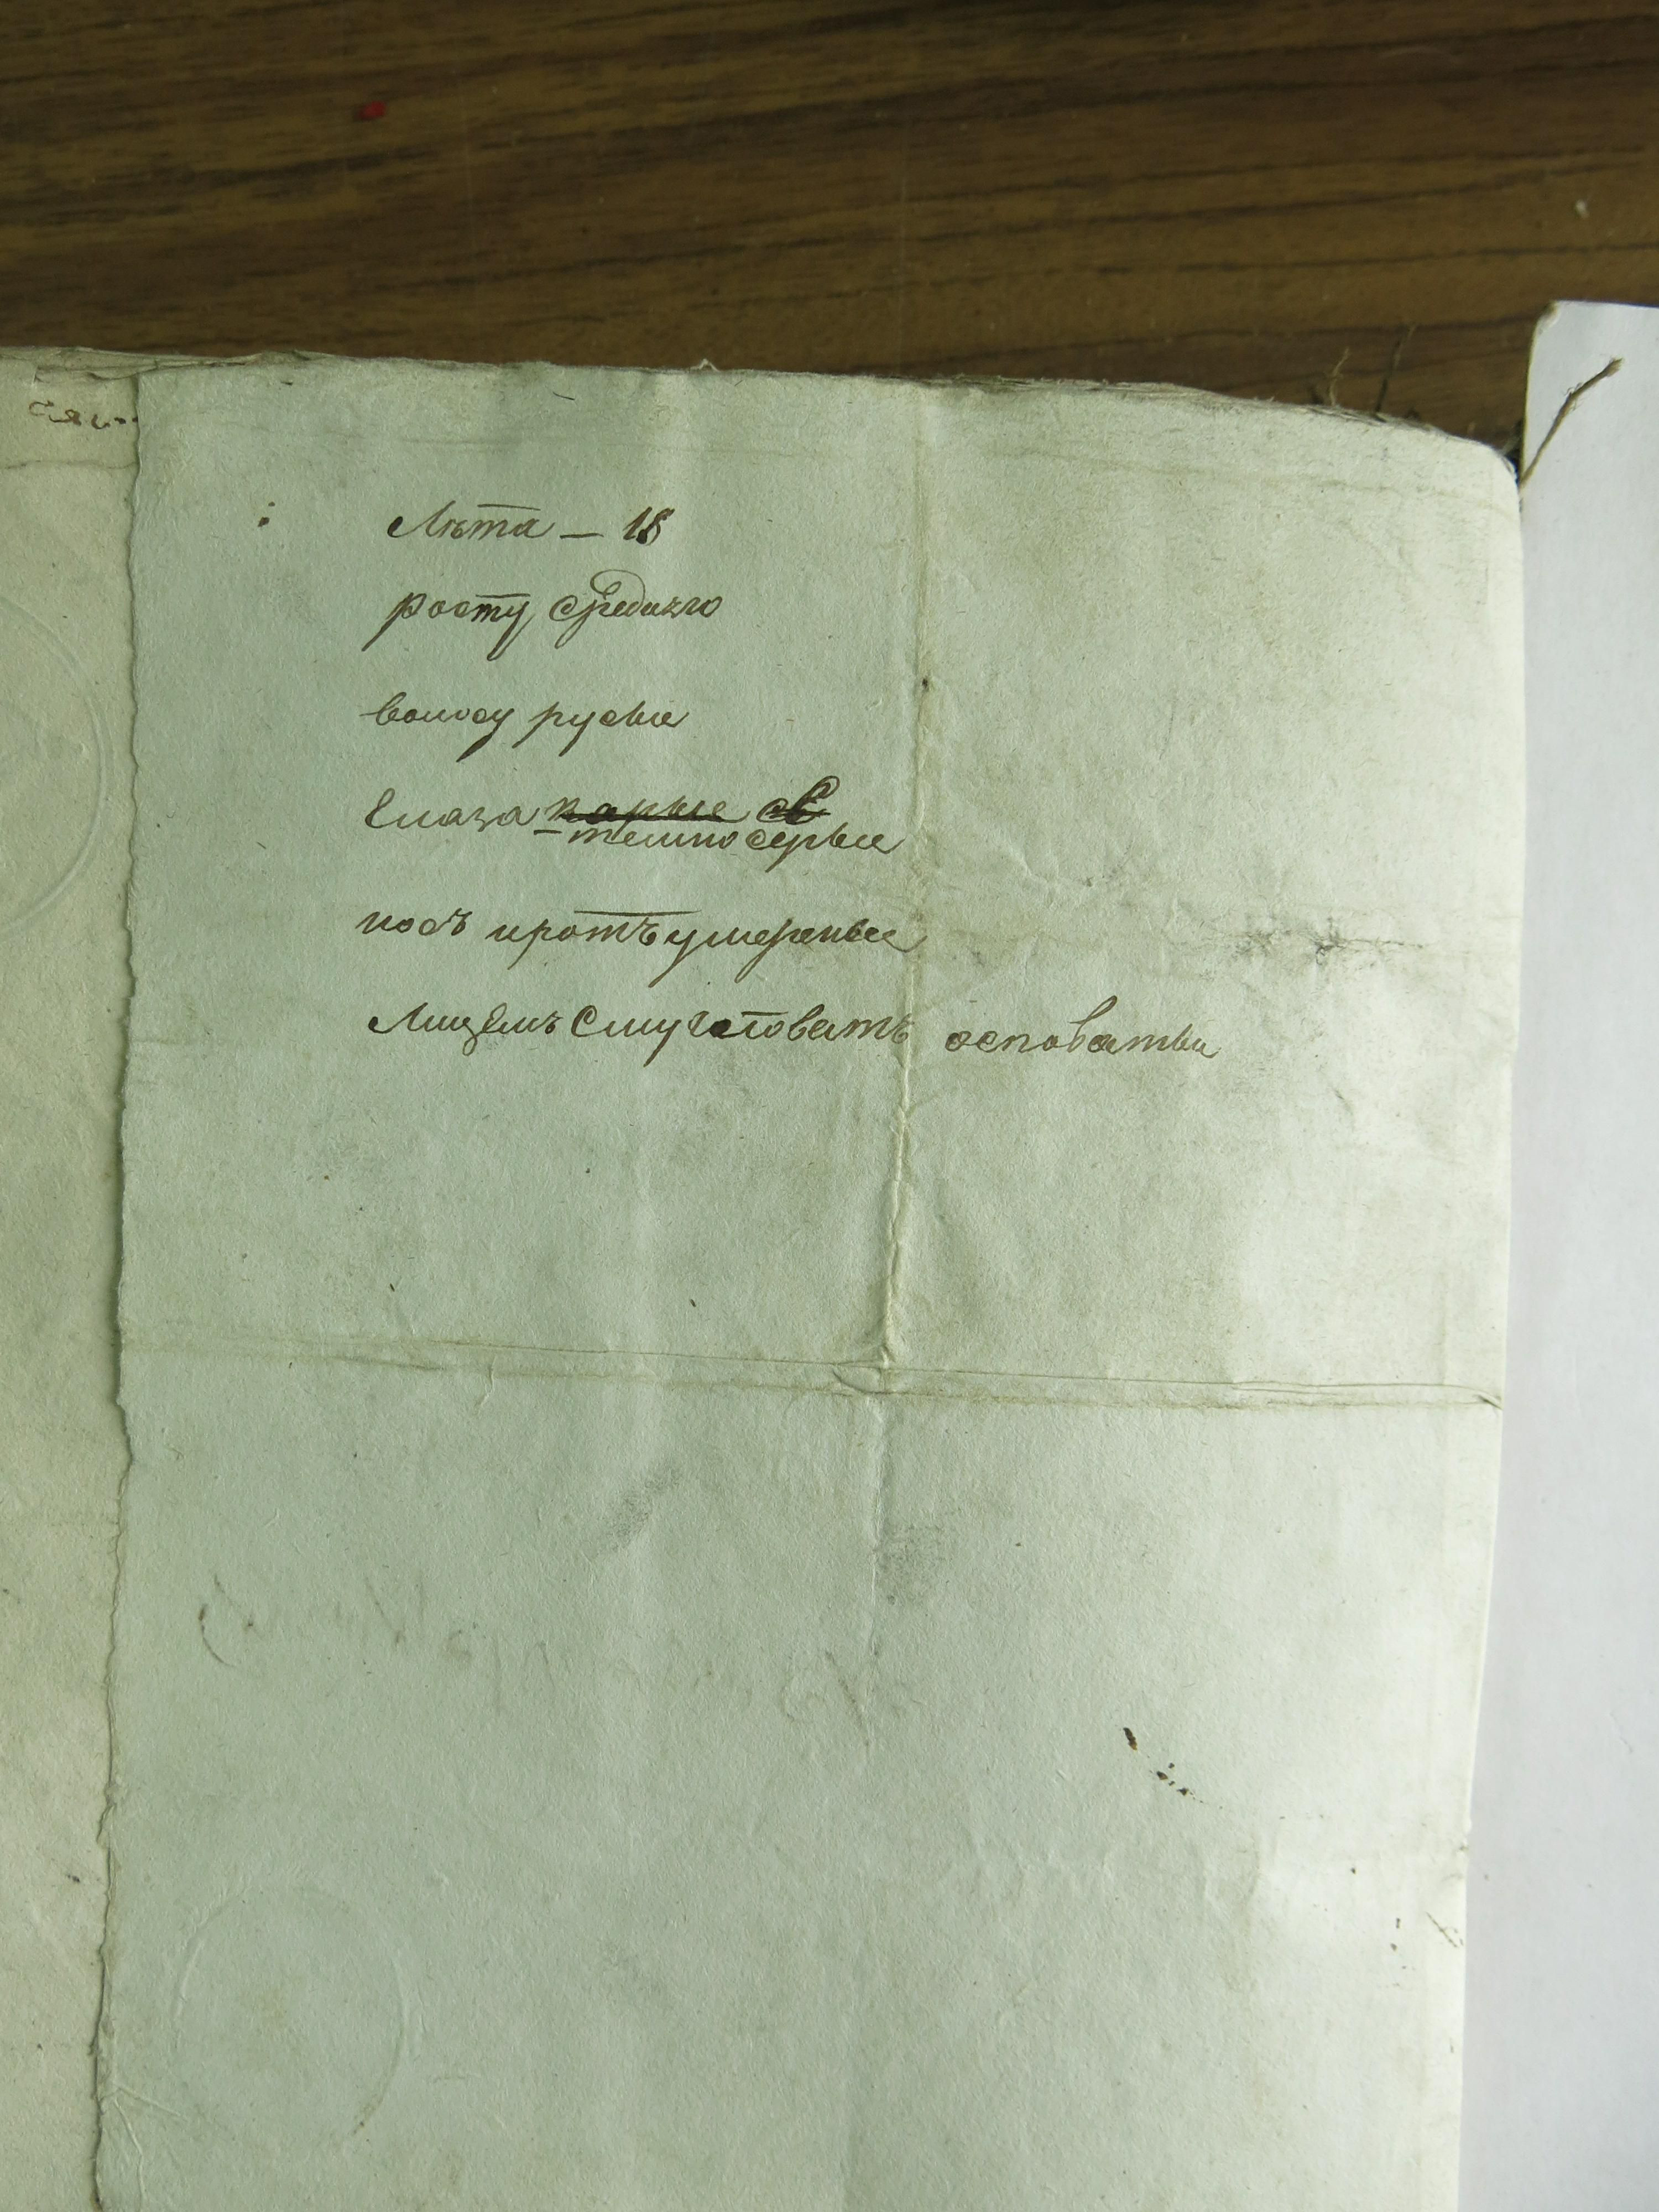 Лѣта — 18
росту средняго
волосу русые
глаза карые св
— темно серые
носъ иротъ умерѣные
Лицемъ Смуглова тъ осповатые